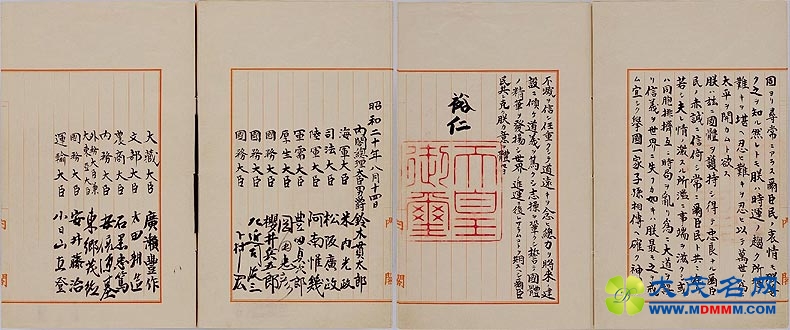 固ヨリ尋常ニアラス爾臣民ノ衷情モ
ク之ヲ知ル然レトモ朕ハ時運ノ趨ク所堪
難キヲ堪ヘ忍ヒ難キヲ忍ヒ以テ萬世ノ為
太平ヲ開カムト欲ス
朕ハ茲ニ國體ヲ護持シ得テ忠良ナル爾臣
民ノ赤誠ニ信倚シ常ニ爾臣民ト共ニ
若シ夫レ情ノ激スル所濫ニ事端ヲ滋クシ或
ハ同胞排擠互ニ時局ヲ亂リ為ニ大道ヲ
リ信義ヲ世界ニ失フカ如キハ朕最モ之ヲ戒
ム宜シク擧國一家子孫相傳ヘ確ク神
不滅ヲ信シ任重クシテ道遠キヲ念ヒ總力ヲ將來ノ建
設ニ傾ケ道義ヲ篤クシ志操ヲ鞏クシ誓テ國體
ノ精華ヲ發揚シ世界ノ進運ニ後レサラムコトヲ期スヘシ爾臣
民其レ克ク朕カ意ヲ體セヨ
裕仁
天皇
御璽
昭和二十年八月十四日
内閣總理大臣男爵 鈴木貫太郎
海軍大臣 米内光政
司法大臣 松阪廣政
陸軍大臣 阿南惟幾
軍需大臣 豊田貞次郎
厚生大臣 岡田忠彦
國務大臣 櫻井兵五郎
國務大臣 左近司政三
國務大臣 下村宏
大藏大臣 廣瀬豊作
文部大臣 太田耕造
農商大臣 石黒忠篤
内務大臣 安倍源基
外務大臣兼大東亞大臣 東郷茂徳
國務大臣 安井藤治
運輸大臣 小日山直登
大茂名网
WWW.MDMMM.COM